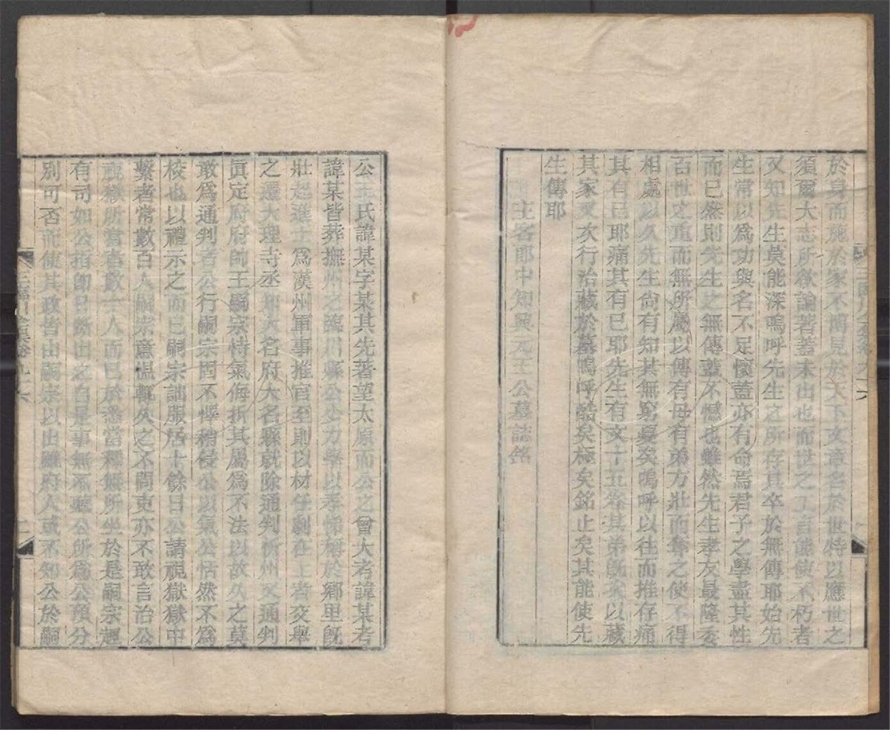 於身而施於家不前見於天下文章名於世特以應世之
須爾大志所欲論著蓋未出也而世之工言能使不朽者
又知先生莫能深嗚呼先生之所存其卒於無傳耶始先
生常以為功與名不足懷蓋亦有命焉君子之學盡其性
而已然則先生之無傳蓋不憾也雖然先生孝友最隆委
百世之重而無所屬以傳有母有弟方壯而奪之使不得
相處以久先生尚有知其無窮憂矣嗚呼以往而推存痛
其有已耶痛其有已耶先生有文十五卷其弟既次以藏
其家又次行治藏於墓嗚呼酷矣極矣銘止矣其能使先
生傳耶
主客郎中知興元王公墓誌銘
公王氏諱某字某其先著望太原而公之曾大考諱某考
諱某皆葬撫州之臨川縣公少力學以孝悌稱於鄉里既
壯起進士為漢州軍事推官至則以材任劇在上者交舉
之遷大理寺丞知大名府大名縣就除通判忻州又通判
真定府府帥王嗣宗恃氣侮折其屬為不法以故久之莫
敢為通判者公行嗣宗固不懌稍侵公以氣公恬然不為
校也以禮示之而已嗣宗詘服居十餘日公請視獄獄中
繫者常數百人嗣宗意慍輒久之不問吏亦不敢言治公
視獄所當治數十人而已於濫當釋無所坐於是嗣宗趣
有司如公指即日斷出之自是事無不聽公所為公預分
別可否而使其政皆由嗣宗以出雖府人或不知公於嗣